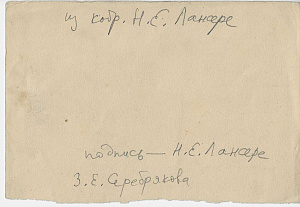 из кобр. Н.Е. Лансере
подпись — Н.Е. Лансере
З.Е. Серебрякова